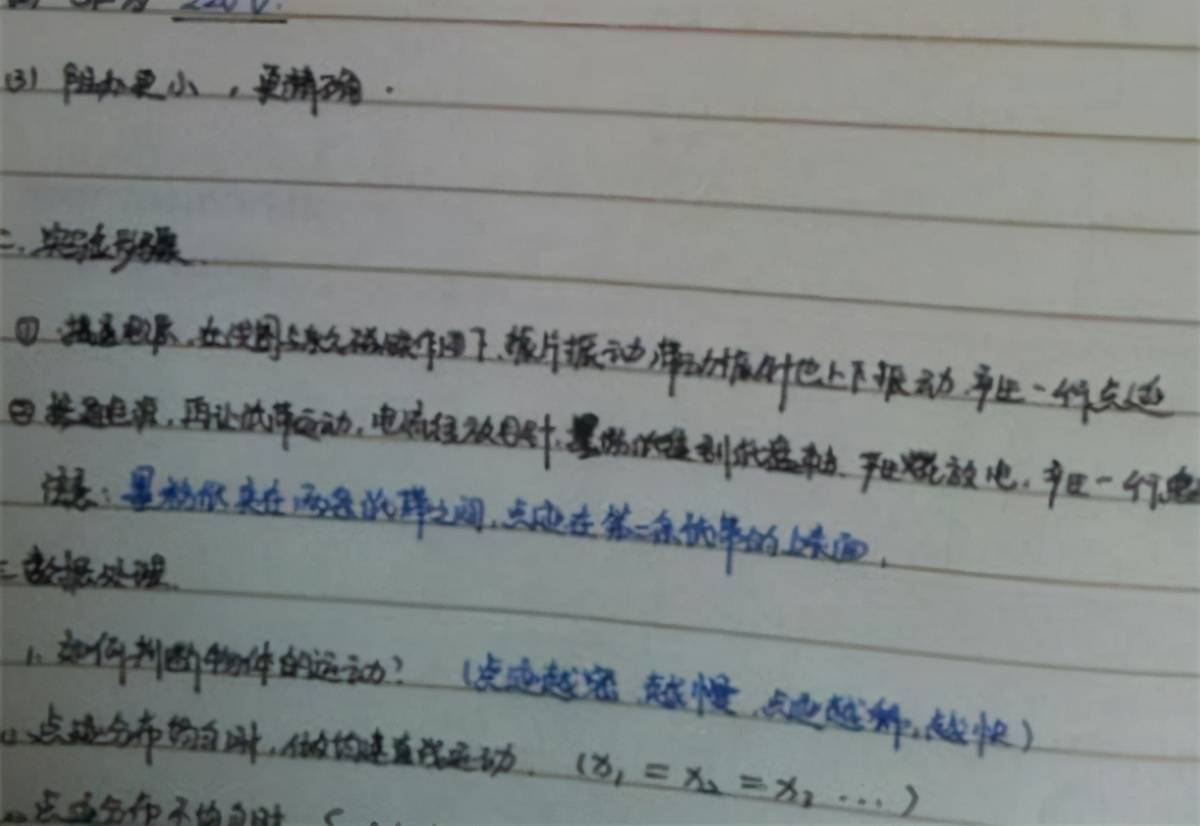 220V.
(3) 阻力更小，更精确.
二. 实验步骤.
① 接通电源，在线圈与永久磁铁作用下，振片振动，带动振针也上下振动，打出一个行点迹
② 接通电源，再让纸带运动，电流经放电针，墨粉纸 到纸盘 ，产生火花放电，打出一个行点
注意：墨粉纸夹在两条纸带之间，点迹在第二条纸带的上表面，
三 数据处理.
1. 如何判断物体的运动？ (点迹越密，越慢，点迹越稀，越快)
点迹分布均匀时，做匀速直线运动. (x₁ = x₂ = x₃ ...)
点迹分布不均匀时